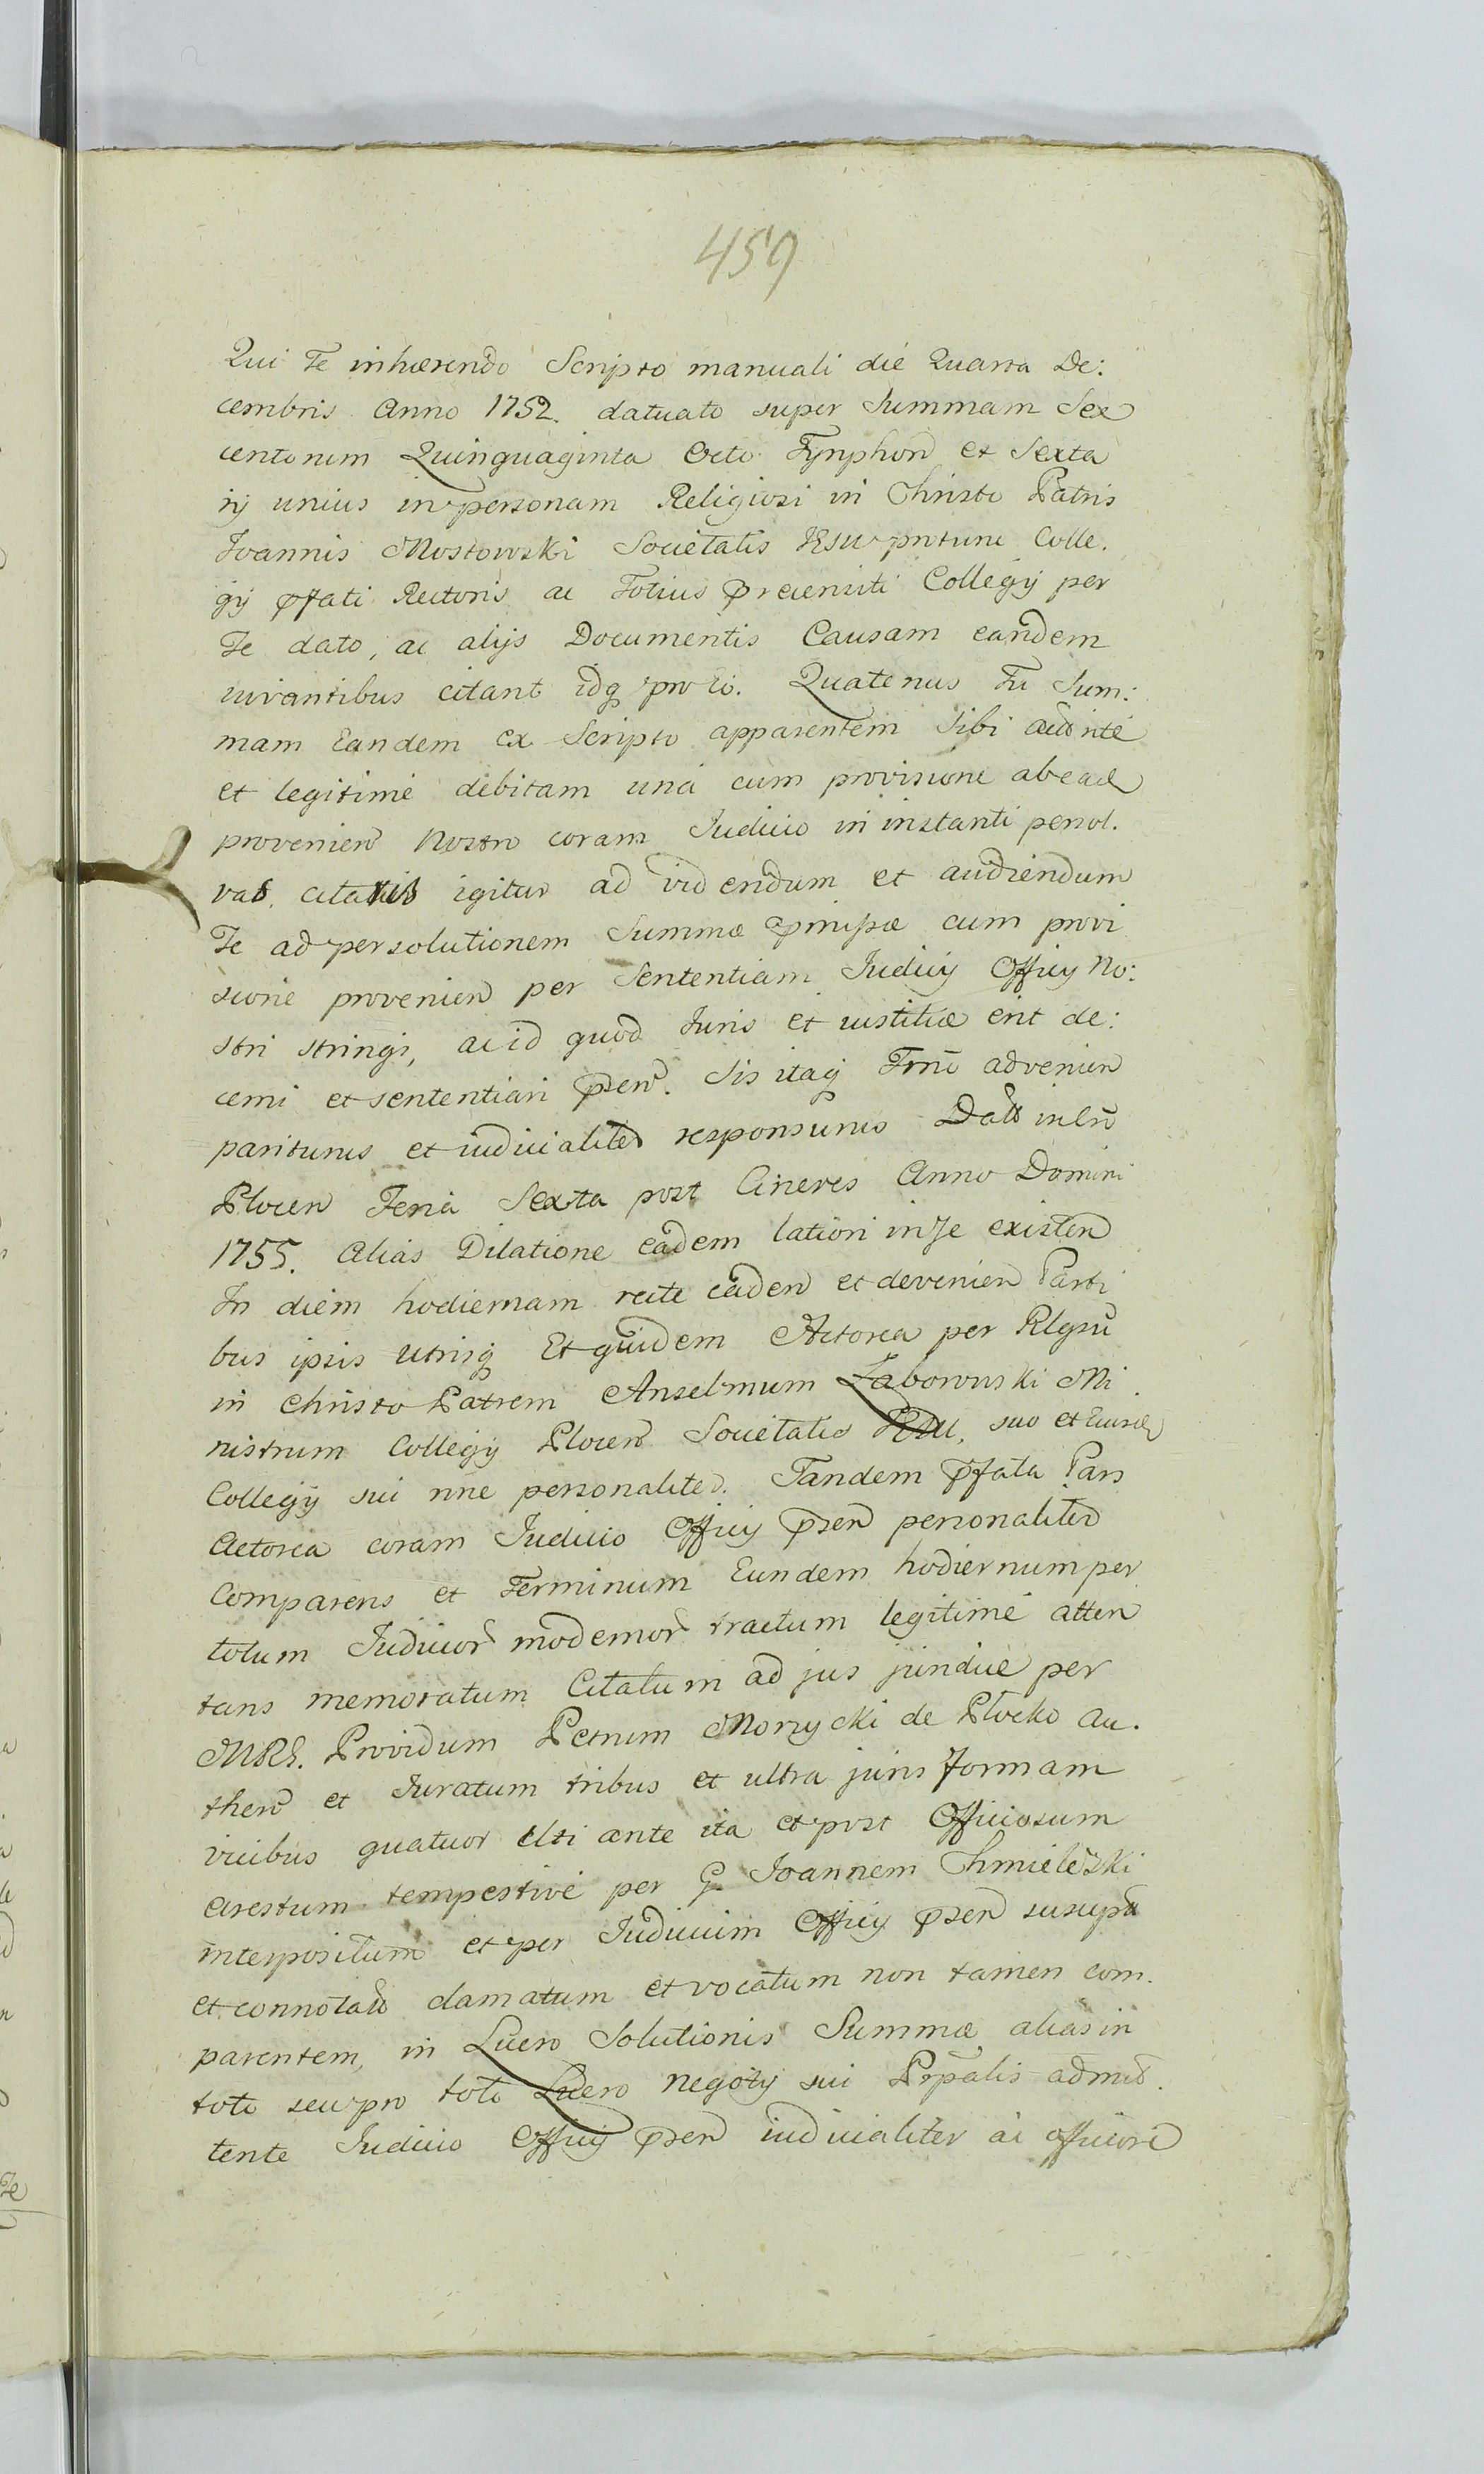 459
Qui Te inhærendo Scripto manuali die Quarta De:
cembris Anno 1752. datuato super Summam Sex
centorum Quinquaginta Octo Tynphon et Sexta
ry unius in personam Religiosi in Christo Patris
Joannis Mostowski Societatis JESU pntune Colle.
gij pfati Rectoris ac Totius precensiti Collegij per
Te dato, ac alijs Documentis Causam eandem
iuvantibus citant idq pro eo. Quatenus Tu Sum:
mam Eandem ex Scripto apparentem Sibi
et legitime debitam una cum provisione ab ead
provenien Nostro coram Judicio in instanti persol.
vas. citaris igitur ad videndum et audiendum
Te ad persolutionem Summæ pmissæ cum provi
sione provenien per Sententiam Judicij Officij No:
stri stringi, ac id quod Juris et iustitiæ erit de:
cerni et sententiari psen. Sis itaq Tmo advenien
pariturus et iudicialiter responsurus Datt in
Plocen Feria Sexta post Cineres Anno Domini
1755. Alias Dilatione eadem latiori in se existen
In diem hodiernam recte caden et devenien Parti
bus ipsis utrisq Et quidem Actorea per Rlgsu
in Christo Patrem Anselmum Zaborowski Mi
nistrum Collegij Plocen Societatis JESU, suo et Eiusd
Collegij sui nne personaliter. Tandem pfata Pars
Actorea coram Judicio Officij psen personaliter
Comparens et Terminum Eundem hodiernum per
totum Judicior modernor tractum legitime atten
tans memoratum Citatum ad jus juridice per
MRS. Providum Petrum Morzycki de Plocko Au.
then et Juratum tribus et ultra juris formam
vicibus quatuor Elti ante ita et post Officiosum
Arestum tempestive per G. Joannem Chmielewski
interpositum et per Judicium Officij psen suscept
et connotatu clamatum et vocatum non tamen com.
parentem, in Lucro Solutionis Summæ alias in
toto seu pro toto Lucro negotij sui Prpalis admit.
tente Judicio Officij psen iudicialiter ac officiore